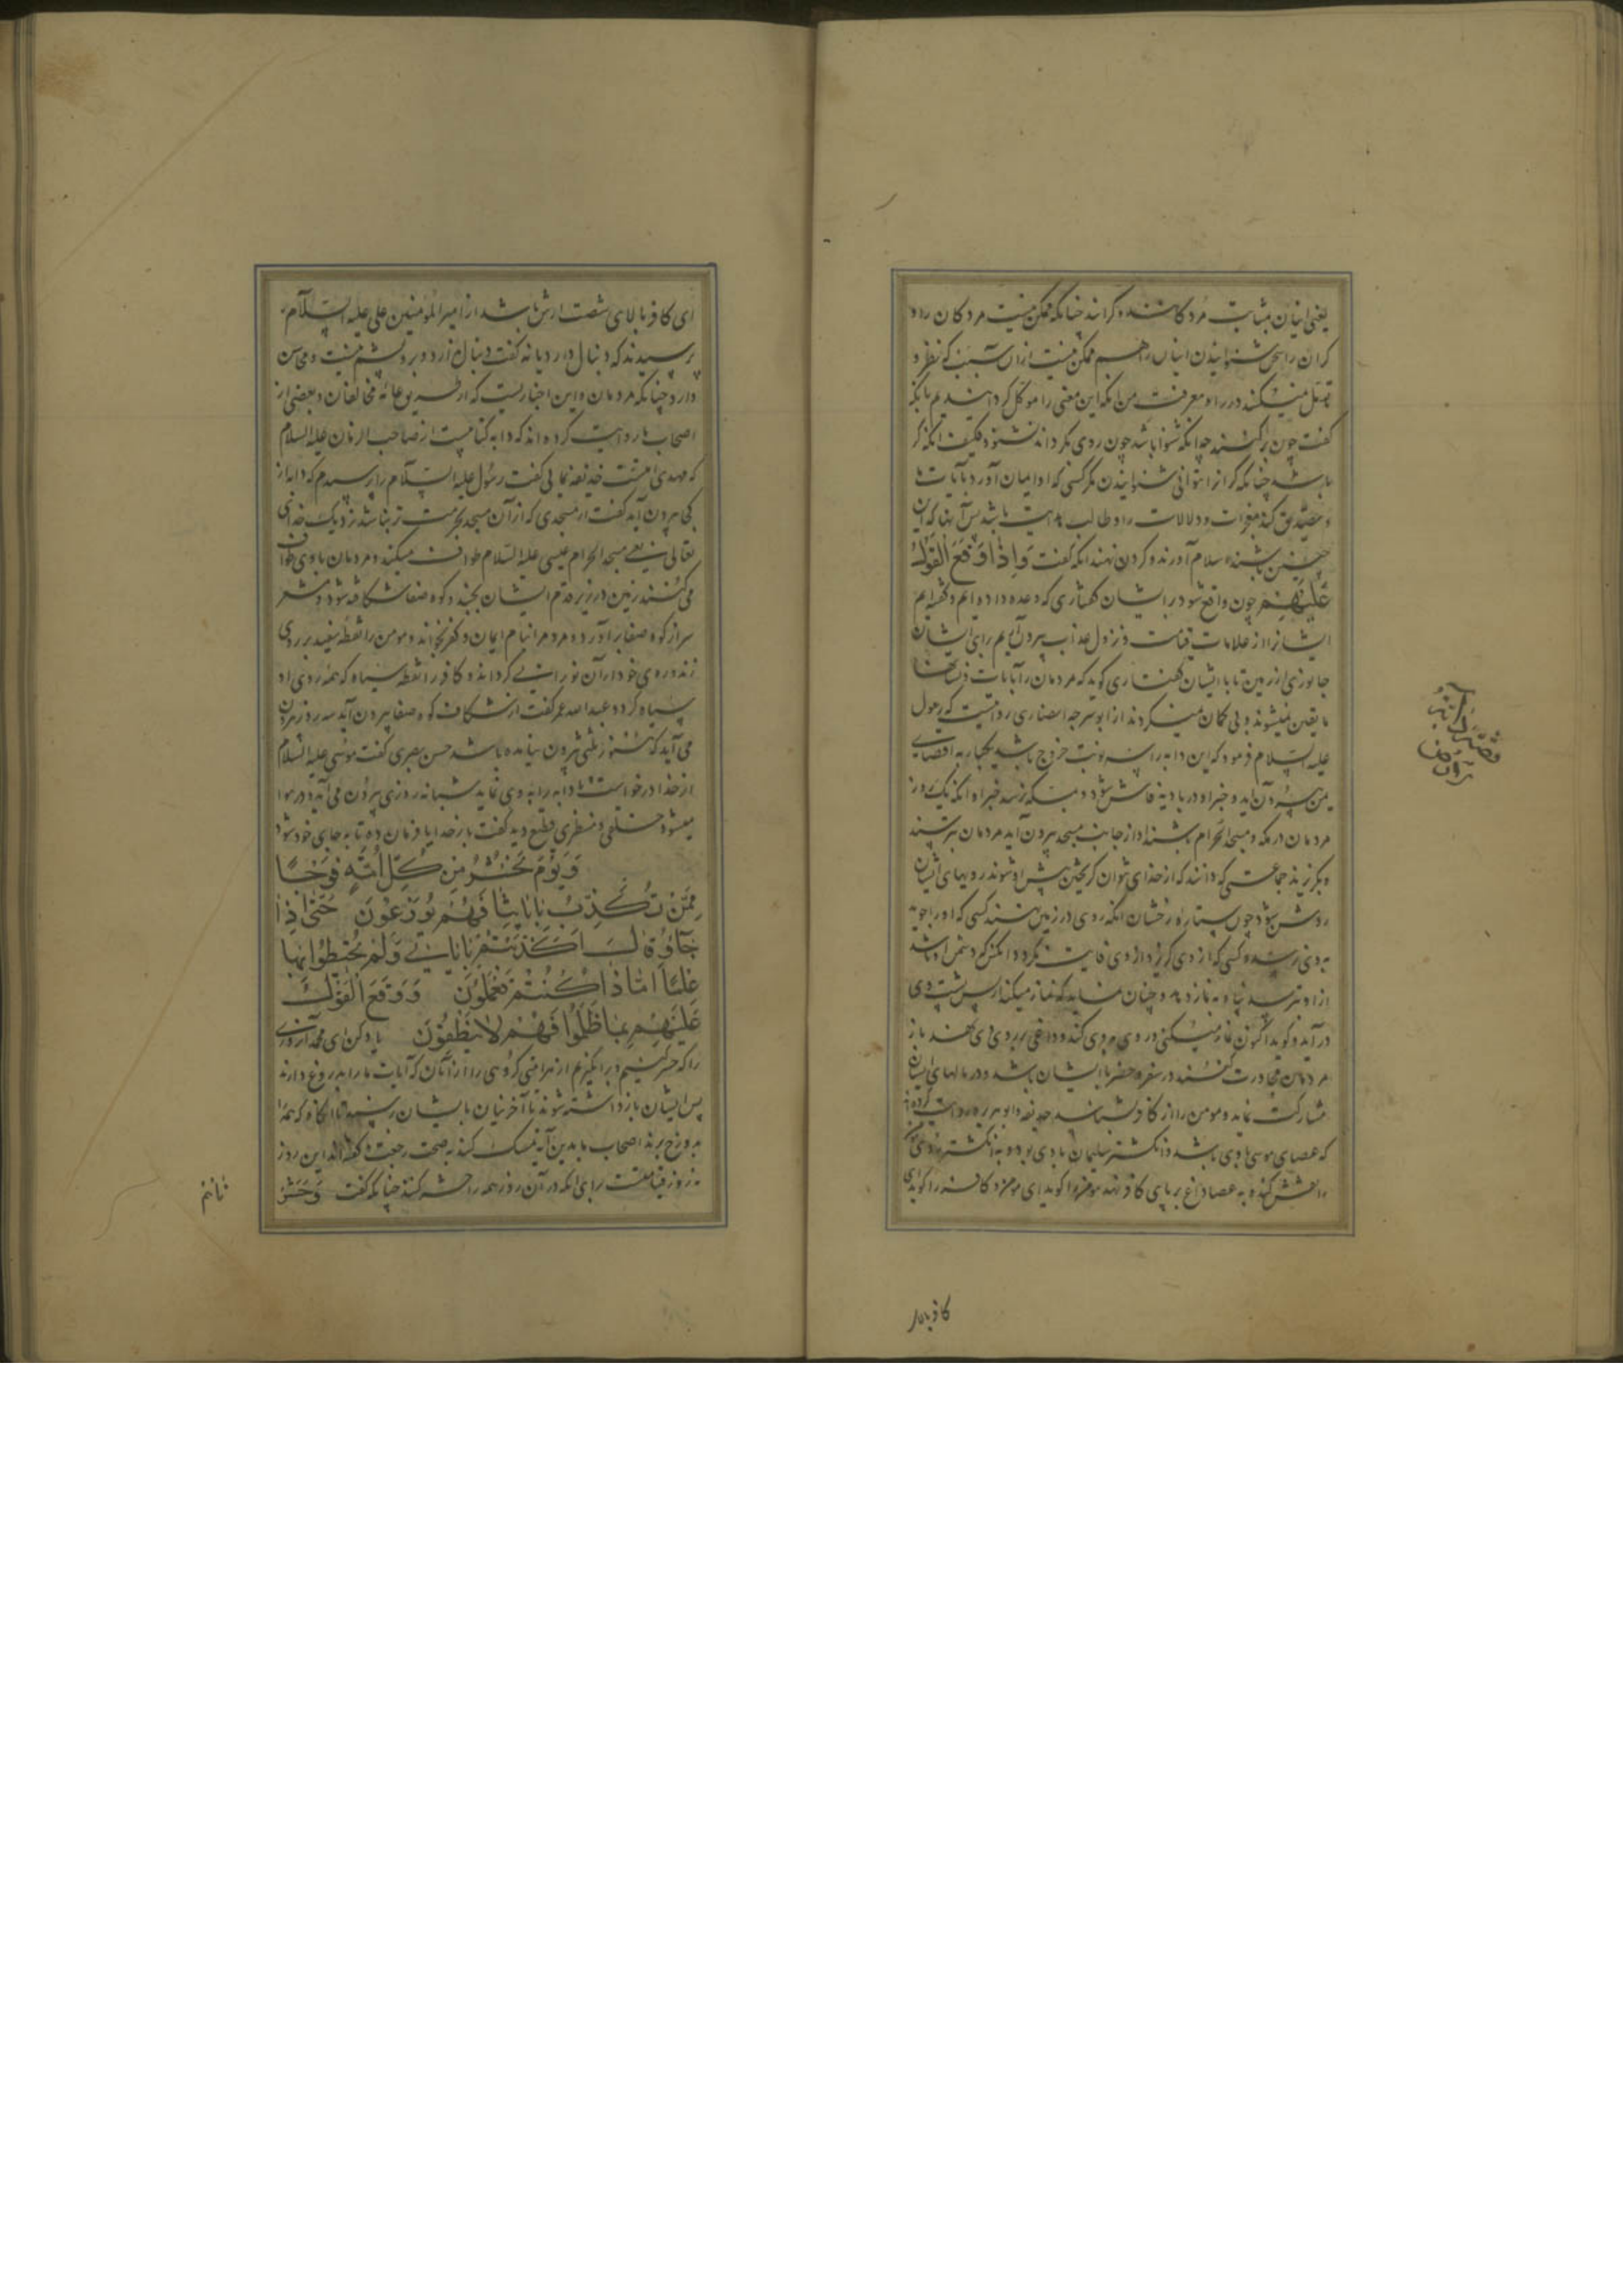 یعنی اینان بمثابت مردکانند و کرانند چنانکه ممکن نیست مردکان را و
کران را سخن شنوانیدن اینان را هم ممکن نیست از آن سبب که نظر و
تامل نمیکنند در راه معرفت من آنکه این معنی را موکد کردانید
کفت چون برکشتند چه آنکه شنوا باشد چون روی بکرداند نشنود فکیف آنکه کر
باشد چنانکه کر را نتوانی شنوانیدن مکر کسی که او ایمان آورد بآیات ما
و تصدیق کند معجزات و دلالات را و طالب هدایت باشد پس آنها که این
چنین باشند اسلام آورند و کردن نهند آنکه کفت وَاِذَا وَقَعَ الْقَوْلُ
عَلَيْهِمْ چون واقع شود بر ایشان کفتاری که وعده داده ایم و کفته ایم
ایشانرا از علامات قیامت و نزول عذاب بیرون آریم برای ایشان
جانوری از زمین تا با ایشان کفتاری کوید که مردمان بآیات
ما یقین نمیشوند و بی کمان نمیکردند از ابو سرجه انصاری روایتست که رسول
علیه السلام فرمود که این دابه را سه نوبت خروج باشد یکبار به اقصای
یمن بیرون آید و خبر او در بادیه فاش شود و بمکه نرسد خبر او آنکه یک روز
مردمان در مکه و مسجد الحرام باشند او از جانب مسجد بیرون آید مردمان بترسند
و بکریزند جماعتی که دانند که از خدای نتوان کریختن پیش او شوند رویهای ایشان
روشن شود چون ستاره رخشان آنکه روی در زمین نهند کسی که او را جوید
به وی نرسد و کسی که از وی کریزد از وی فایت نکردد آنکس که دشمن او باشد
از او بترسد پناه به نماز دهد و چنان نماید که نماز میکند از پس پشت وی
در آید و کوید اکنون نماز میکنی در وی کند و داغی بر روی وی نهند باز
مردمان مجاورت کنند در سفر و حضر با ایشان باشد و در مالهای ایشان
مشارکت نماید و مومن را از کافر بشناسد حذیفه و ابو هریره روایت کرده‌اند
که عصای موسی با وی باشد و انکشتر سلیمان با وی بود و به انکشتر روی مومن
را نقش کند و به عصا داغ بر پای کافر نهد مومنرا کوید ای مومن و کافر را کوید ای
قصه دابة
بیرون
کافر بالا
ای کافر بالای شصت ارش باشد از امیر المؤمنین علی علیه السلام
پرسیدند که دنبال دارد یا نه کفت دنبال ندارد و بر وی پشم نیست و محاسن
دارد چنانکه مردمان و این اخباریست که از طریق عامه مخالفان و بعضی از
اصحاب ما روایت کرده اند که دابه کنایتست از صاحب الزمان علیه السلام
که مهدی امتست حذیفه یمانی کفت رسول علیه السلام را پرسیدم که دابه از
کجا بیرون آید کفت از مسجدی که از آن مسجد بحرمت تر نباشد نزدیک خدای
تعالی یعنی مسجد الحرام عیسی علیه السلام طواف میکند و مردمان با وی طواف
می کنند زمین در زیر قدم ایشان بجنبد و کوه صفا شکافته شود و
سر از کوه صفا بر آورد و مردمرا بنام ایمان و کفر بخواند و مومن را نقطه سفید بر روی
زند و روی خود از آن نورانی کرداند و کافر را نقطه سیاه که همه روی او
سیاه کردد عبدالله عمر کفت از شکاف کوه صفا بیرون آید سه روز بیرون
می آید که هنوز ثلثی بیرون نیامده باشد حسن بصری کفت موسی علیه السلام
از خدا درخواست تا دابه را به وی نماید شبانه روزی بیرون می آمد و در هوا
میشد خلقی و منظری فظیع دید کفت بار خدایا فرمان ده تا به جای خود شود
وَيَوْمَ نَحْشُرُ مِنْ كُلِّ اُمَّةٍ فَوْجًا
مِمَّنْ تُكَذِّبُ بِاٰيَاتِنَا فَهُمْ يُوزَعُونَ حَتّٰى اِذَا
جَآؤُ قَالَ اَكَذَّبْتُمْ بِاٰيَاتِي وَلَمْ تُحِيطُوا بِهَا
عِلْمًا اَمَّا ذَا كُنْتُمْ تَعْمَلُونَ وَوَقَعَ الْقَوْلُ
عَلَيْهِمْ بِمَا ظَلَمُوا فَهُمْ لَا يَنْطِقُونَ یاد کن ای محمد آنروزی
را که حشر کنیم و بر انکیزیم از هر امتی کروهی را از آنان که آیات ما را بدروغ دارند
پس ایشان باز داشته شوند تا آخرینان بایشان رسند تا آنکاه که همه را
به دوزخ برند اصحاب ما بدین آیه تمسک کنند به صحت رجعت و کفتند این روز
نه روز قیامتست برای آنکه در آن روز همه را حشر کنند چنانکه کفت وَحَشَرْ
ناهم